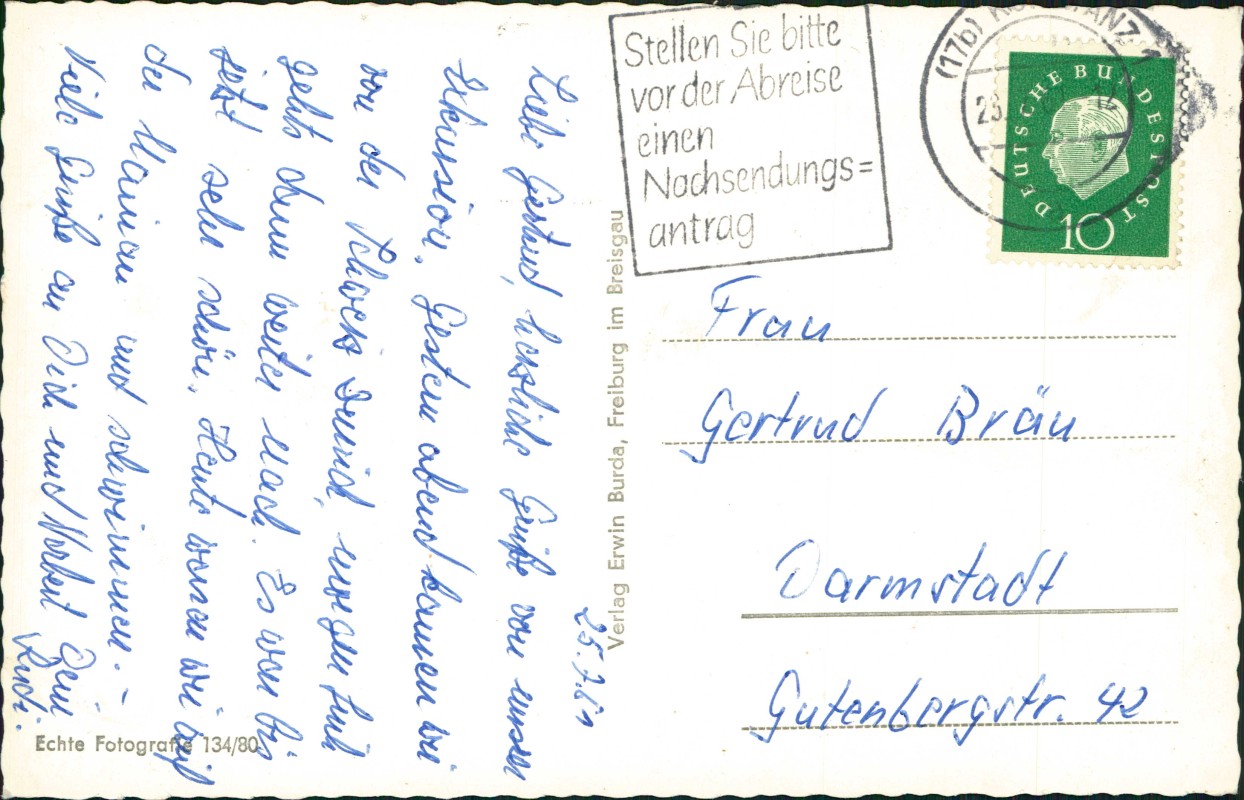 25.7.61
Liebe Gertrud, herzliche Grüße von unserer
Exkursion. Gestern abend kamen wir
von der Schweiz zurück, morgen früh
geht's dann weiter nach. Es war bis
jetzt sehr schön. Heute waren wir auf
der Mainau und schwimmen. –
Viele Grüße an Dich und Norbert Dein
Rudi.
Echte Fotografie 134/80
Verlag Erwin Burda, Freiburg im Breisgau
Stellen Sie bitte
vor der Abreise
einen
Nachsendungs=
antrag
(17b) KONSTANZ 1
DEUTSCHE BUNDESPOST
10
Frau
Gertrud Bräu
Darmstadt
Gutenbergstr. 42